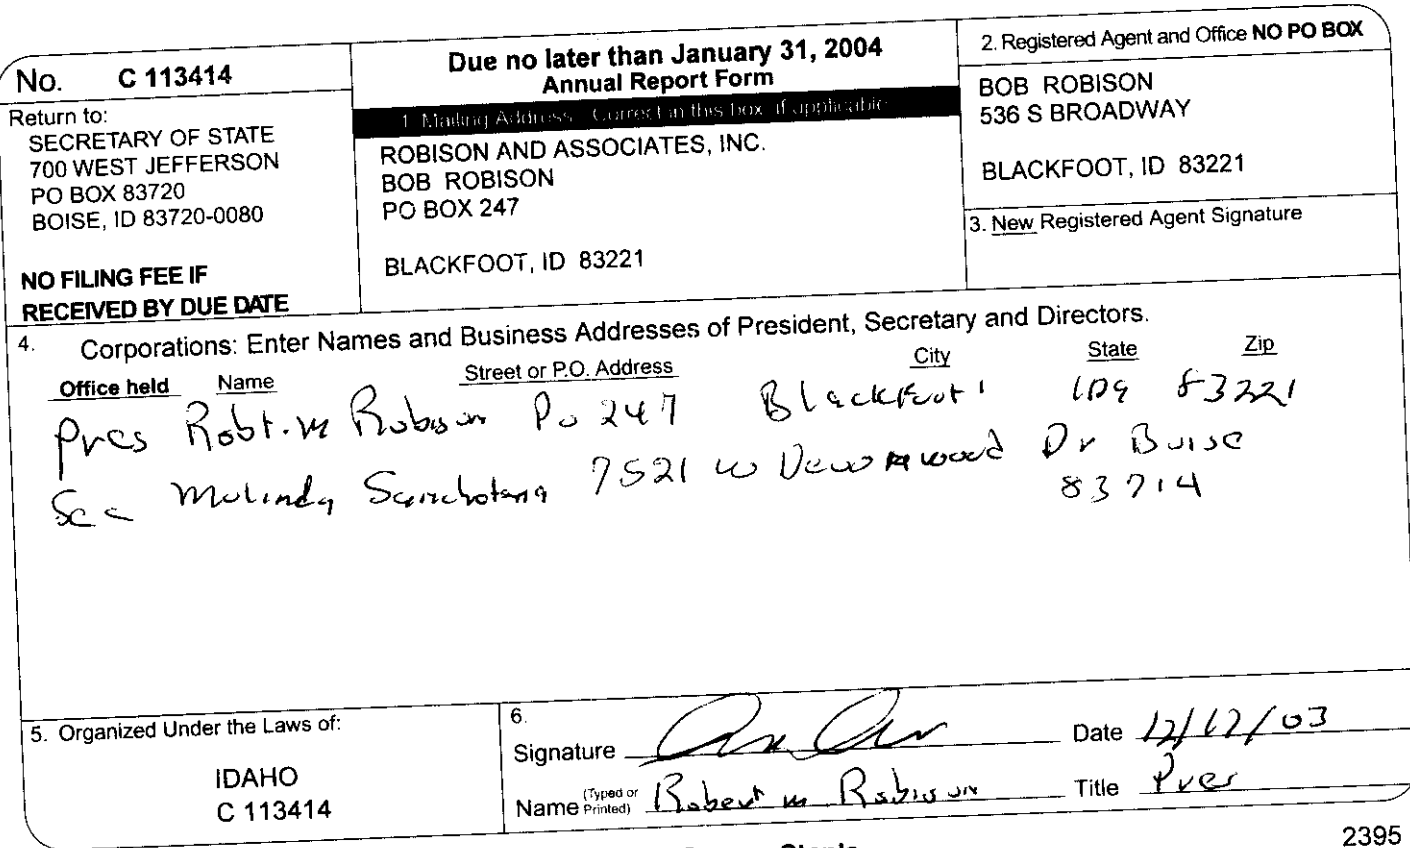 No. C 113414
Return to:
SECRETARY OF STATE
700 WEST JEFFERSON
PO BOX 83720
BOISE, ID 83720-0080
NO FILING FEE IF
RECEIVED BY DUE DATE
Due no later than January 31, 2004
Annual Report Form
1. Mailing Address: Correct in this box, if applicable
ROBISON AND ASSOCIATES, INC.
BOB ROBISON
PO BOX 247
BLACKFOOT, ID 83221
2. Registered Agent and Office NO PO BOX
BOB ROBISON
536 S BROADWAY
BLACKFOOT, ID 83221
3. New Registered Agent Signature
4. Corporations: Enter Names and Business Addresses of President, Secretary and Directors.
Office held Name Street or P.O. Address City State Zip
Pres Robt. M Robison Po 247 Blackfoot 83221
Sec Melinda 7521 W Dr Boise
83714
5. Organized Under the Laws of:
IDAHO
C 113414
6.
Signature Date 12/17/03
Name (Typed or Printed) Robert M Robison Title Pres
2395